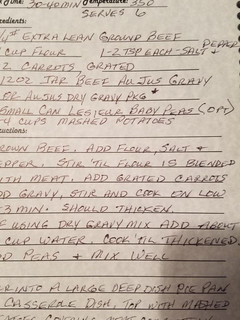 Time: 30-40min Temperature: 350
SERVES 6
edients:
# EXTRA LEAN GROUND BEEF
CUP FLOUR 1-2 TSP EACH-SALT + PEPPER
2 CARROTS, GRATED
12OZ JAR BEEF AU JUS GRAVY
OR AU JUS DRY GRAVY PKG *
SMALL CAN LESIEUR BABY PEAS (OPT)
4 CUPS MASHED POTATOES
ructions:
ROWN BEEF. ADD FLOUR, SALT &
EPPER. STIR 'TIL FLOUR IS BLENDED
WITH MEAT. ADD GRATED CARROTS
DD GRAVY, STIR AND COOK ON LOW
-3 MIN. SHOULD THICKEN.
F USING DRY GRAVY MIX ADD ABOUT
CUP WATER. COOK 'TIL THICKENED
DD PEAS & MIX WELL
INTO A LARGE DEEP DISH PIE PAN
CASSEROLE DISH, TOP WITH MASHED